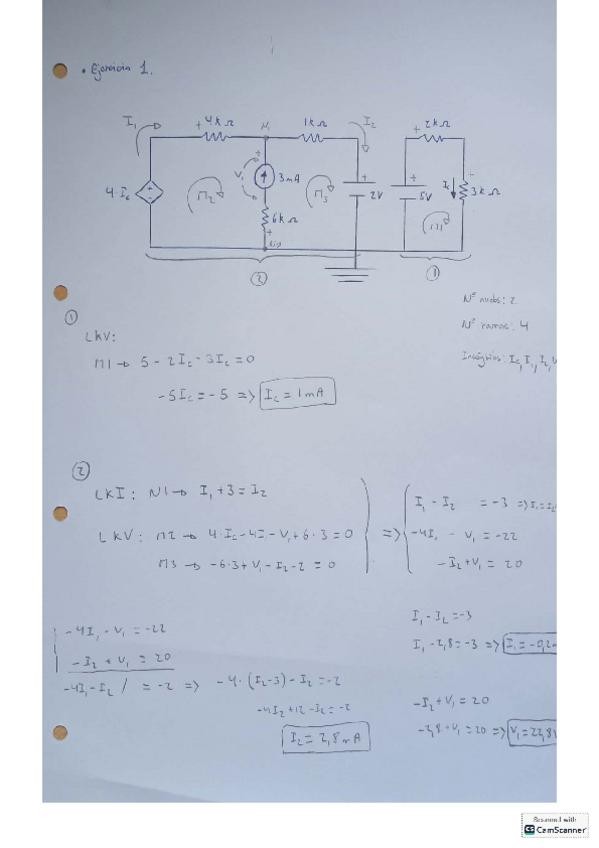 • Ejercicio 1.
I₁ + 4kΩ N₁ 1kΩ I₂ + 2kΩ
4·Ic M2 V₁ + 3mA M3 + 2V + 5V Ic + 3kΩ
6kΩ + M1
② ①
Nº nudos: 2
Nº ramas: 4
Incógnitas: Ic, I₁, I₂, V
①
LKV:
M1 → 5 - 2Ic - 3Ic = 0
-5Ic = -5 => Ic = 1mA
②
LKI: N1 → I₁ + 3 = I₂
LKV: M2 → 4·Ic - 4I - V₁ + 6·3 = 0
M3 → -6·3 + V₁ - I₂ - 2 = 0
=> I₁ - I₂ = -3 => I₁ = I₂
-4I₁ - V₁ = -22
-I₂ + V₁ = 20
-4I₁ - V₁ = -22
-I₂ + V₁ = 20
-4I₁ - I₂ / = -2 => -4·(I₂-3) - I₂ = -2
-4I₂ + 12 - I₂ = -2
I₂ = 2,8mA
I₁ - I₂ = -3
I₁ - 2,8 = -3 => I₁ = -0,2m
-I₂ + V₁ = 20
-2,8 + V₁ = 20 => V₁ = 22,8V
Scanned with
CS CamScanner